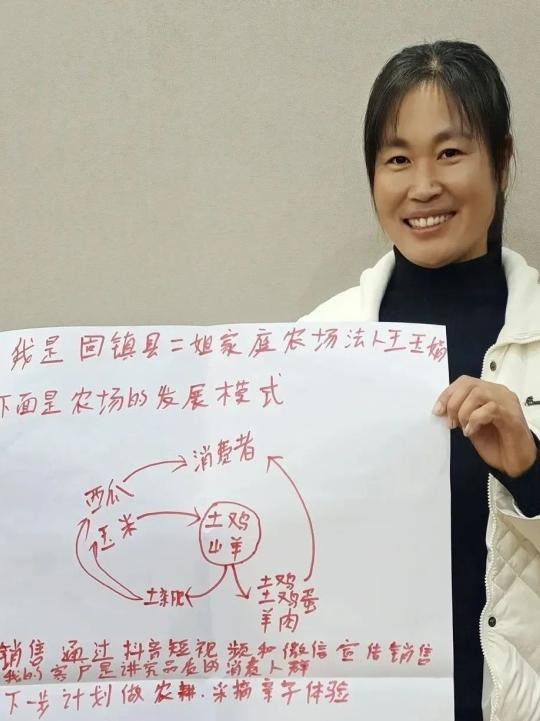 我是固镇县二姐家庭农场法人王玉娟
下面是农场的发展模式
消费者
西瓜
玉米
土鸡
山羊
土杂肥
土鸡
土鸡蛋
羊肉
销售通过抖音短视频和微信宣传销售
我的客户是讲究品质的消费人群
下一步计划做农耕.采摘亲子体验